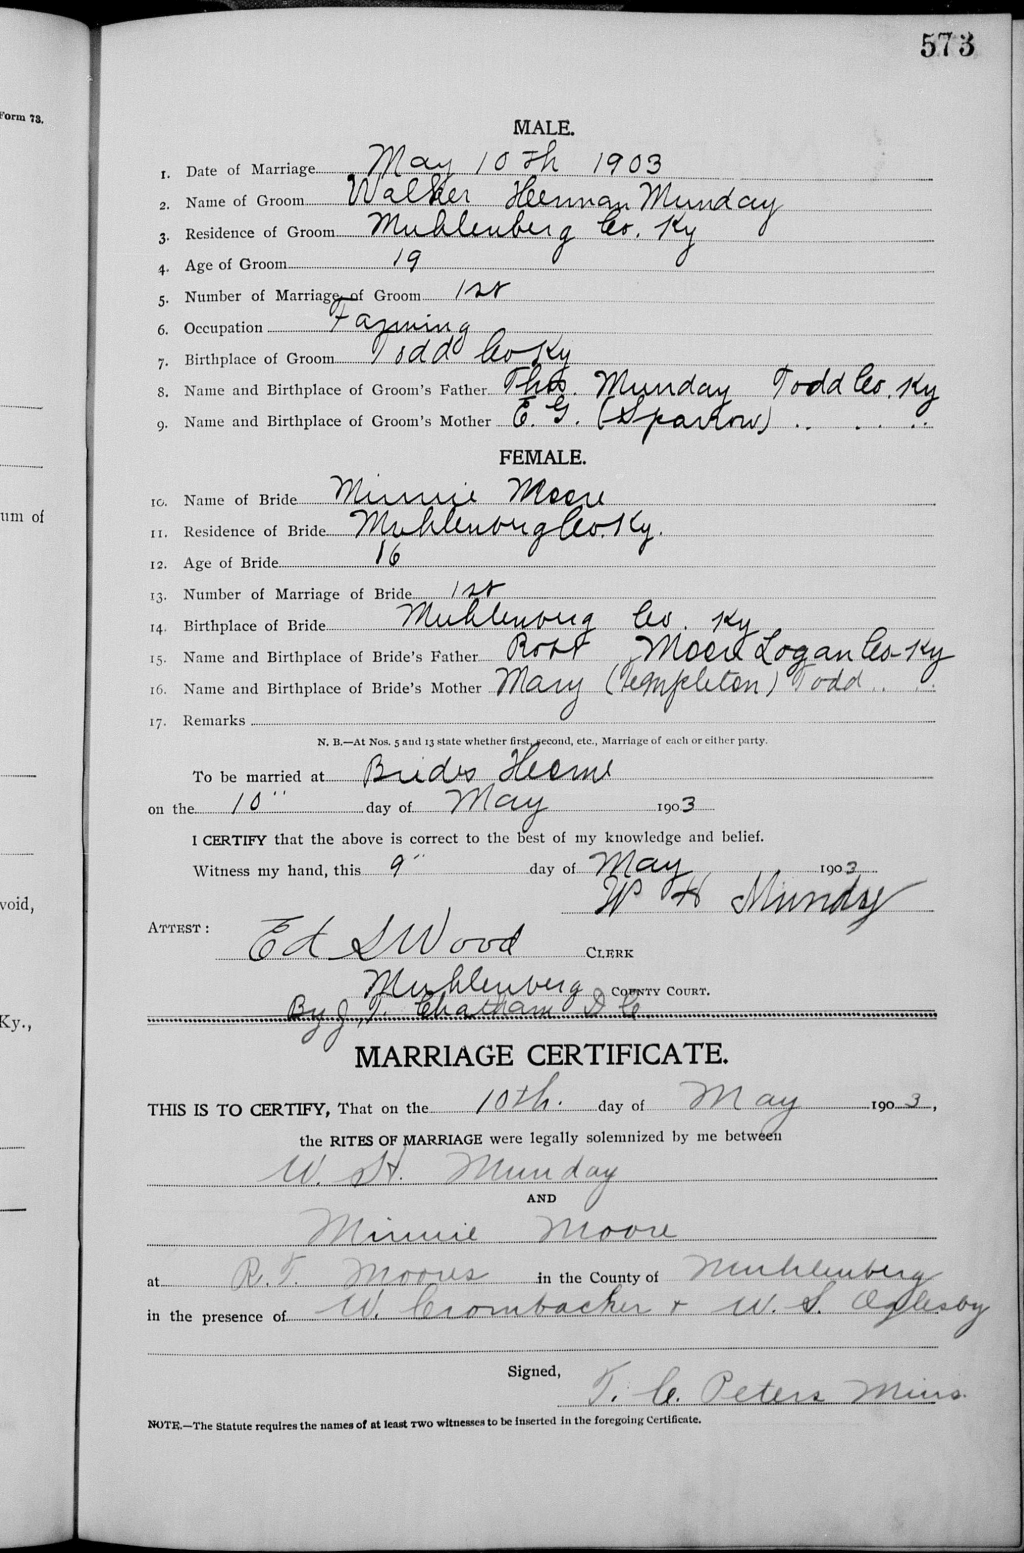 573
Form 73.
MALE.
1. Date of Marriage May 10th 1903
2. Name of Groom Walker Herman Munday
3. Residence of Groom Muhlenberg Co. Ky
4. Age of Groom 19
5. Number of Marriage of Groom 1st
6. Occupation Farming
7. Birthplace of Groom Todd Co Ky
8. Name and Birthplace of Groom's Father Thos. Munday Todd Co. Ky
9. Name and Birthplace of Groom's Mother E. G. (Sparrow) .. .. ..
FEMALE.
10. Name of Bride Minnie Moore
11. Residence of Bride Muhlenberg Co. Ky.
12. Age of Bride 16
13. Number of Marriage of Bride 1st
14. Birthplace of Bride Muhlenberg Co. Ky
15. Name and Birthplace of Bride's Father Robt Moore Logan Co Ky
16. Name and Birthplace of Bride's Mother Mary (Templeton) Todd .. ..
17. Remarks
N. B.—At Nos. 5 and 13 state whether first, second, etc., Marriage of each or either party.
To be married at Brides Home
on the 10" day of May 1903
I CERTIFY that the above is correct to the best of my knowledge and belief.
Witness my hand, this 9" day of May 1903
W H Munday
ATTEST:
Ed S Wood CLERK
Muhlenberg COUNTY COURT.
By J. T. Chatham D C
MARRIAGE CERTIFICATE.
THIS IS TO CERTIFY, That on the 10th. day of May 1903,
the RITES OF MARRIAGE were legally solemnized by me between
W. H. Munday
AND
Minnie Moore
at R. T. Moores in the County of Muhlenberg
in the presence of W. Crombacher + W. S. Oglesby
Signed,
T. C. Peters Mins.
NOTE.—The Statute requires the names of at least TWO witnesses to be inserted in the foregoing Certificate.
um of
void,
Ky.,